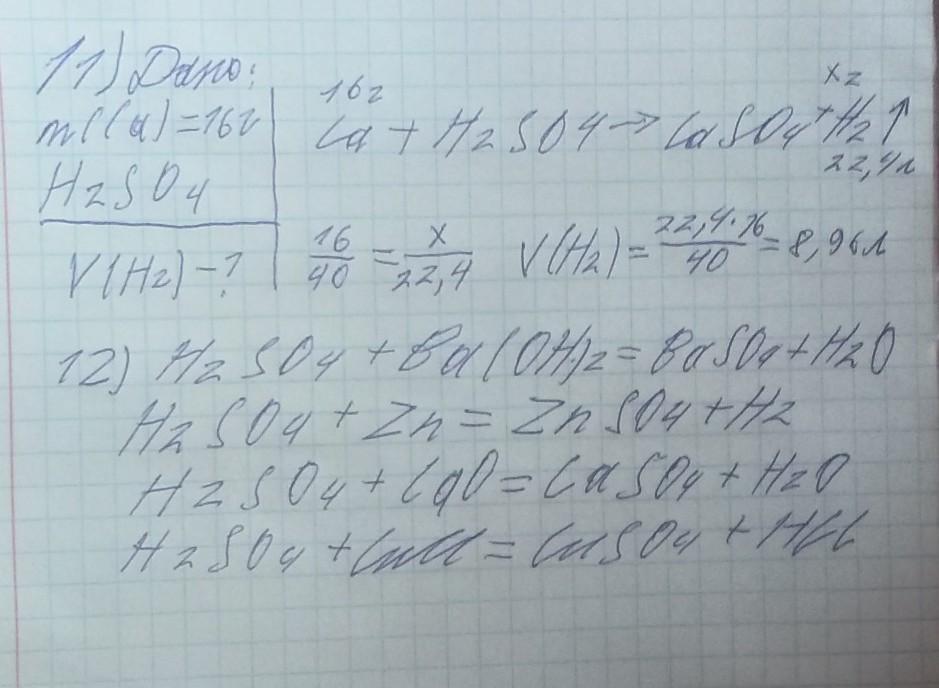 11) Дано:
m(Ca)=16г
H2SO4
V(H2)-?
16г xг
Ca + H2SO4 → CaSO4 + H2↑
22,4л
16/40 = x/22,4 V(H2) = 22,4·16/40 = 8,96л
12) H2SO4 + Ba(OH)2 = BaSO4 + H2O
H2SO4 + Zn = ZnSO4 + H2
H2SO4 + CaO = CaSO4 + H2O
H2SO4 + CuCl = CuSO4 + HCl